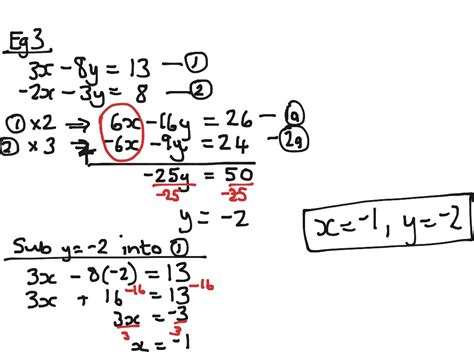 Eg3
3x - 8y = 13 — ①
-2x - 3y = 8 — ②
① x2 ⇒ 6x - 16y = 26 — 1a
② x 3 ⇒ + -6x - 9y = 24 — 2a
-25y = 50
-25 -25
y = -2
x = -1, y = -2
Sub y = -2 into ①
3x - 8(-2) = 13
3x + 16 -16 = 13 -16
3x = -3
3 3
x = -1